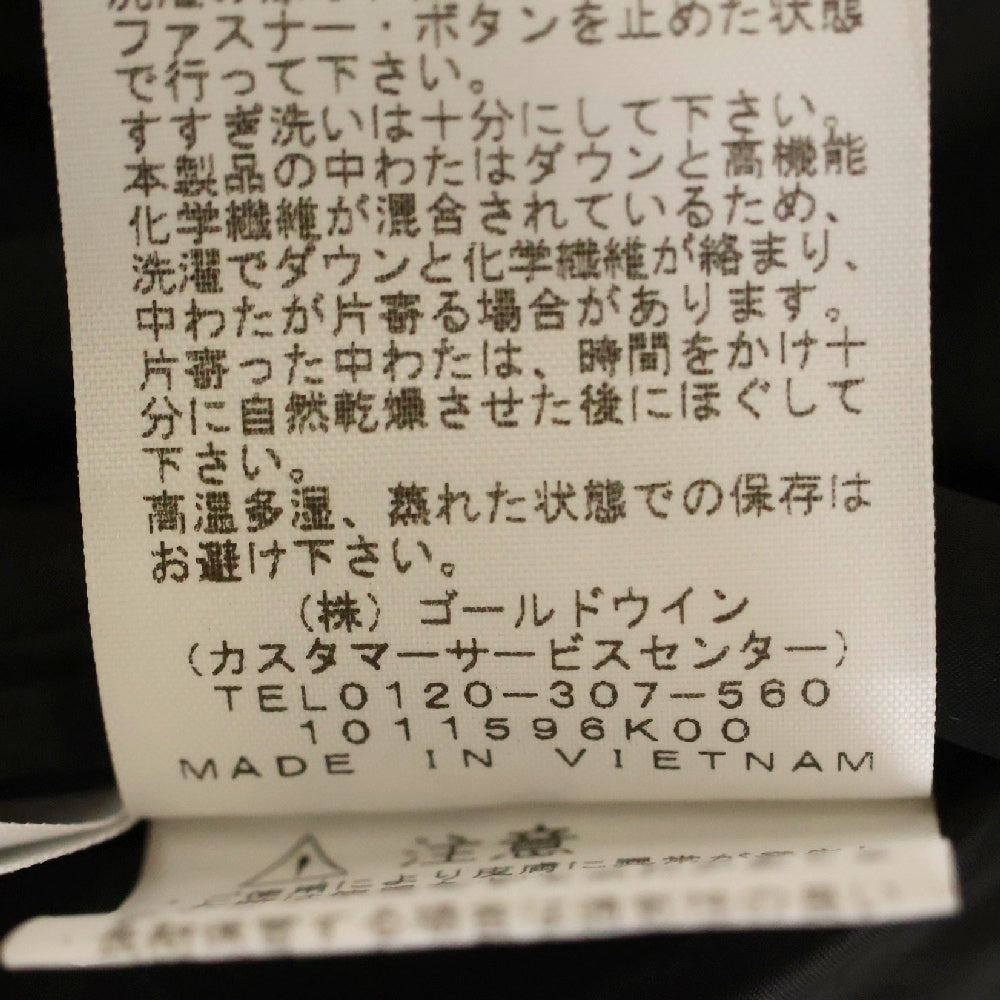 ファスナー・ボタンを止めた状態
で行って下さい。
すすぎ洗いは十分にして下さい。
本製品の中わたはダウンと高機能
化学繊維が混合されているため、
洗濯でダウンと化学繊維が絡まり、
中わたが片寄る場合があります。
片寄った中わたは、時間をかけ十
分に自然乾燥させた後にほぐして
下さい。
高温多湿、蒸れた状態での保存は
お避け下さい。
(株)ゴールドウイン
(カスタマーサービスセンター)
TEL0120-307-560
1011596K00
MADE IN VIETNAM
注意